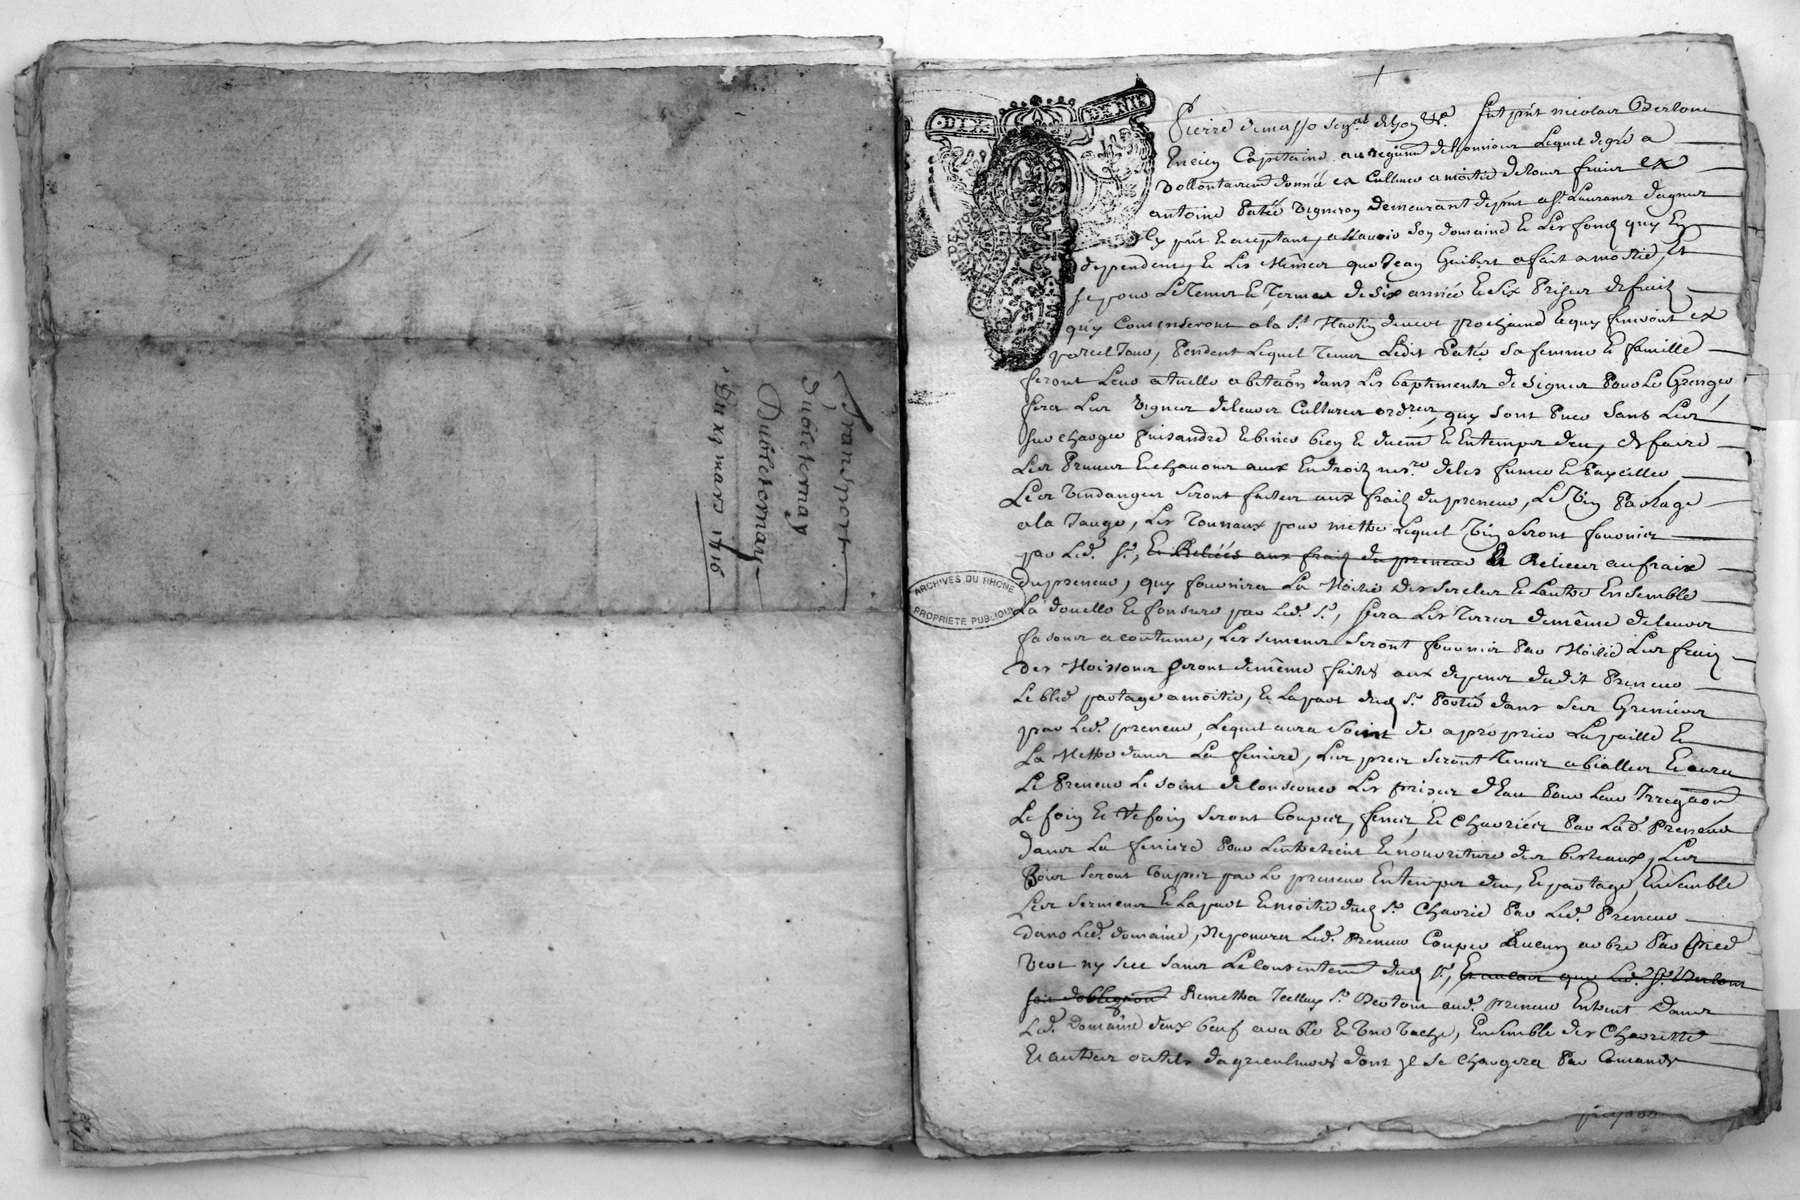 Transport
Dubletornay
Dubletornay
Du xj mars 1716
DIX DENIE
Pierre fut pnt nicolas Bertoud
Encien Capitaine au regiment Lequel de gré a
vollontairemt donné en Culture a moitié de tour fruier ex
antoine Patié vigneron Demeurant a St Laurans dagner
Cy pnt Et acceptant, a scavoir son domaine Et les fond quy En
dependent, Et les mêmes que Jean Guibert a fait a moitié, Et
se pour Le temps Et terme de six année Et six prises de fruit
quy Comenseront a la St Martin prochaine Et quy finiront ex
pareil Jour, Pendent Lequel temps Ledit Patié sa femme Et famille
feront Leur atuelle abitaōn dans Les baptiments de signes Pour Le Granger
fera Les vignes de leurs Cultures ordres, quy sont sans Les
bien Et duemt Et En temps deu, Et faire
Les aux Endroits nesres de les fumer Et Paxeller
Les vendanges seront faites aux frais du preneur, Le vin Partagé
a la Jauge, Les tonnaux pour mettre Lequel vin seront fournier
par Led. Sr, Et Reliées aux frais du preneur Et Relieer au fraix
du preneur, quy fournira La Moitié des sercles Et Lautre Ensemble
La douelle Et fonsure par Led. Sr, fera Les terres de même de leurs
fasons acoutume, Les semences seront fournier Par Moitié Les frais
des Moissons seront de même faites aux depens dudit Preneur
Le bled partagé a moitié, Et La part dud Sr Portée dans ses Greniers
par Led. preneur, Lequel aura soint de aproprier La paille Et
La Mettre dans La feniere, Les prés seront tenus a bialler Et aura
Le Preneur Le soint de Conserver Les prises dEau Pour Leur Irrigaōn
Le foin Et refoin seront Coupés, fenés, Et Charriés Par Led. Preneur
dans La feniere Pour Lentretient Et nourriture des bestiaux, Les
Bois seront Coupés par Le preneur En temps deu, Et partagé, Ensemble
Les sermens Et La part Et moitié dud Sr Charrié Par Led. Preneur
dans Led. domaine, Ne pourra Led. Preneur Couper Aucun arbre Par pied
vert ny sec sans Le Consentemt dud Sr, Et au cas que Led. Sr Bertoud
Remettra Sr Bertoud aud. preneur Entrent Dans
Led. Domaine deux beuf arable Et une vache, Ensemble des Charrette
Et autres outils dagriculture dont Il se Chargera Par Comande
ARCHIVES DU RHONE
PROPRIETE PUBLIQUE